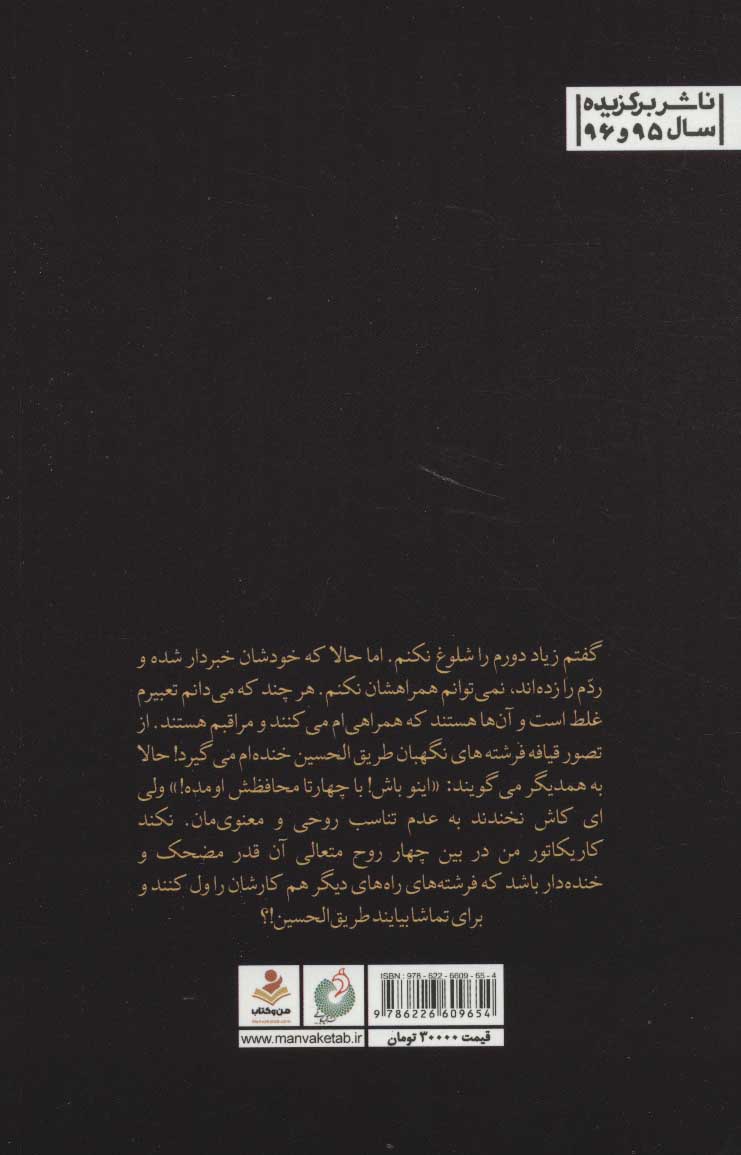 ناشر برگزیده
سال ۹۵ و ۹۶
گفتم زیاد دورم را شلوغ نکنم. اما حالا که خودشان خبردار شده و
ردّم را زده‌اند، نمی‌توانم همراهشان نکنم. هر چند که می‌دانم تعبیرم
غلط است و آن‌ها هستند که همراهی‌ام می‌کنند و مراقبم هستند. از
تصور قیافه فرشته‌های نگهبان طریق‌الحسین خنده‌ام می‌گیرد! حالا
به همدیگر می‌گویند: «اینو باش! با چهارتا محافظش اومده!» ولی
ای کاش نخندند به عدم تناسب روحی و معنوی‌مان. نکند
کاریکاتور من در بین چهار روح متعالی آن قدر مضحک و
خنده‌دار باشد که فرشته‌های راه‌های دیگر هم کارشان را ول کنند و
برای تماشا بیایند طریق‌الحسین!؟
ISBN : 978 - 622 - 6609 - 65 - 4
9 786226 609654
من و کتاب
قیمت ۳۰۰۰۰ تومان
www.manvaketab.ir